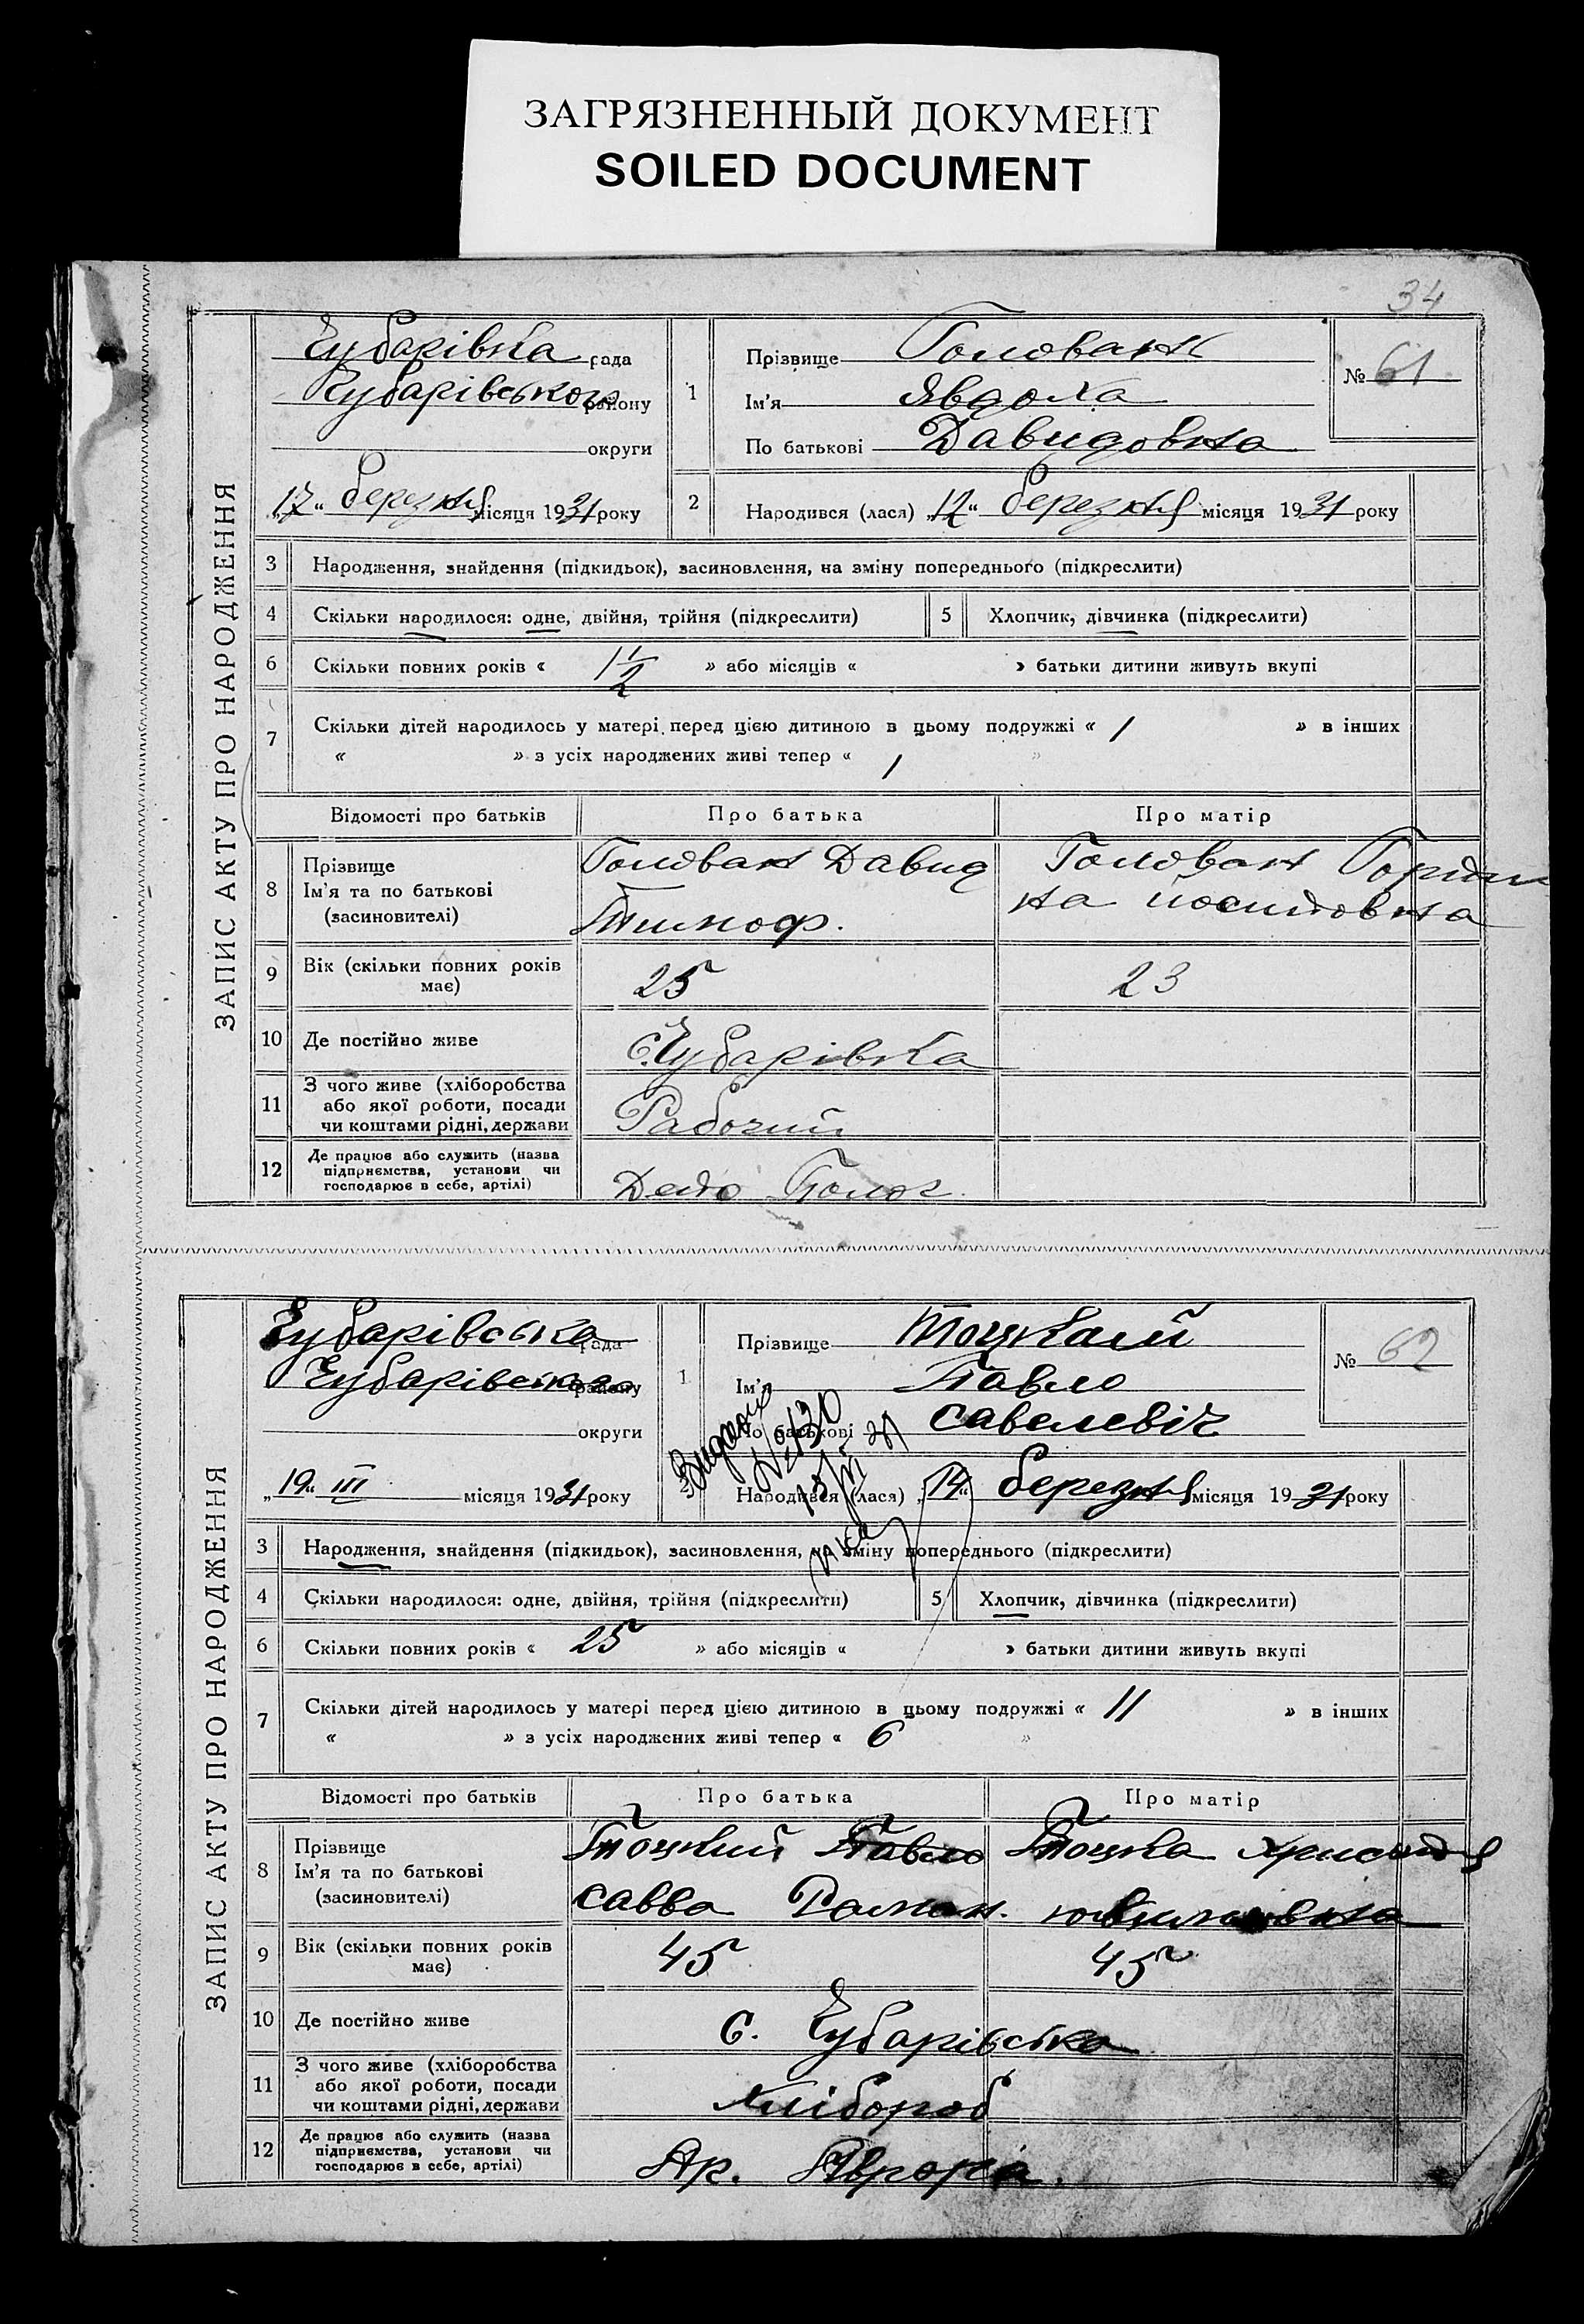 ЗАГРЯЗНЕННЫЙ ДОКУМЕНТ
SOILED DOCUMENT
34
ЗАПИС АКТУ ПРО НАРОДЖЕННЯ
Чубарівка рада
Чубарівського району
округи
„17“ березня місяця 1931 року
1
Прізвище Головань
Ім'я Явдоха
По батькові Давидовна
№ 61
2
Народився (лася) „12“ березня місяця 1931 року
3 Народження, знайдення (підкидьок), засиновлення, на зміну попереднього (підкреслити)
4 Скільки народилося: одне, двійня, трійня (підкреслити) 5 Хлопчик, дівчинка (підкреслити)
6 Скільки повних років « 1 1/2 » або місяців « » батьки дитини живуть вкупі
7 Скільки дітей народилось у матері перед цією дитиною в цьому подружжі « 1 » в інших
« » з усіх народжених живі тепер « 1 »
Відомості про батьків Про батька Про матір
8 Прізвище
Ім'я та по батькові
(засиновителі)
Головань Давид
Тимоф.
Головань
на йосиповна
9 Вік (скільки повних років має) 25 23
10 Де постійно живе с. Чубарівка
11 З чого живе (хліборобства
або якої роботи, посади
чи коштами рідні, держави
Рабочий
12 Де працює або служить (назва
підприємства, установи чи
господарює в себе, артілі)
Депо Полог
ЗАПИС АКТУ ПРО НАРОДЖЕННЯ
Чубарівська рада
Чубарівського району
округи
„19“ III місяця 1931 року
1
Прізвище Тоцкий
Ім'я Павло
По батькові савелевіч
№ 62
№ 130
Народився (лася) „14“ березня місяця 1931 року
3 Народження, знайдення (підкидьок), засиновлення, на зміну попереднього (підкреслити)
4 Скільки народилося: одне, двійня, трійня (підкреслити) 5 Хлопчик, дівчинка (підкреслити)
6 Скільки повних років « 25 » або місяців « » батьки дитини живуть вкупі
7 Скільки дітей народилось у матері перед цією дитиною в цьому подружжі « 11 » в інших
« » з усіх народжених живі тепер « 6 »
Відомості про батьків Про батька Про матір
8 Прізвище
Ім'я та по батькові
(засиновителі)
Тоцкий Павло
савва Роман.
Тоцка
9 Вік (скільки повних років має) 45 45
10 Де постійно живе с. Чубарівска
11 З чого живе (хліборобства
або якої роботи, посади
чи коштами рідні, держави
хлібороб
12 Де працює або служить (назва
підприємства, установи чи
господарює в себе, артілі)
Ар.